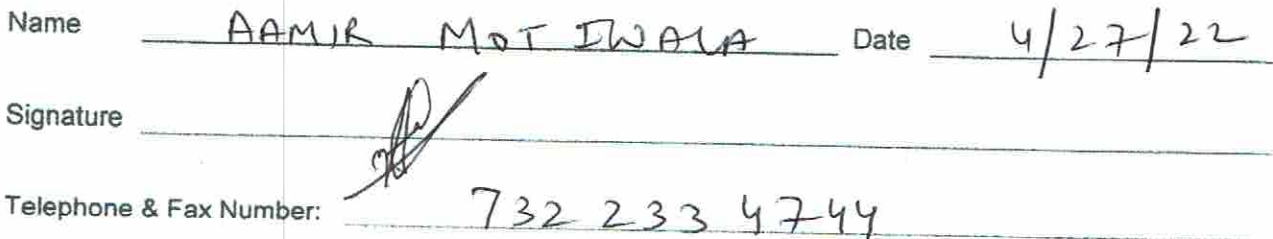 Name AAMIR MOTIWALA Date 4/27/22
Signature
Telephone & Fax Number: 732 233 4744